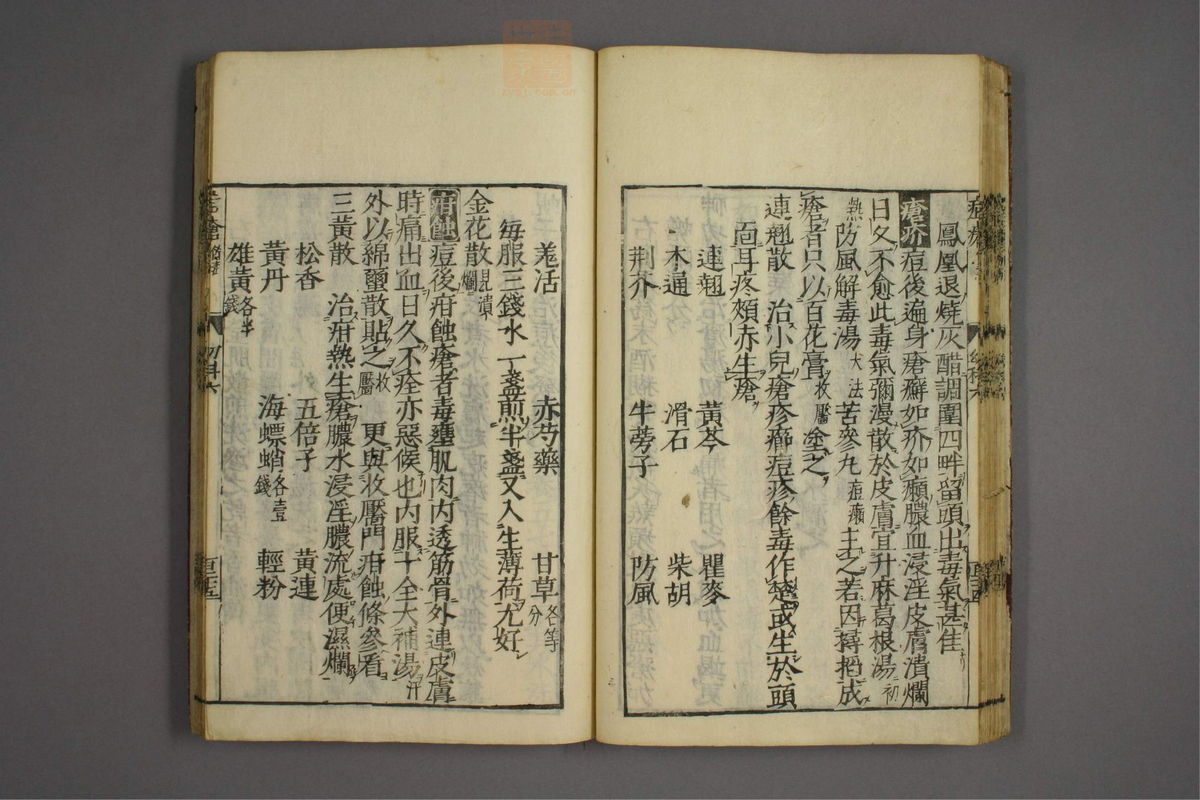 鳳凰退燒灰醋調圍四畔留頭出毒氣甚佳
瘡疥痘後遍身瘡癬如疥如癩膿血浸淫皮膚潰爛
日久不愈此毒氣彌漫散於皮膚宜升麻葛根湯初
熱防風解毒湯大法苦參丸痘癩主之若因搔把成
瘡者只以百花膏收靨塗之
連翹散 治小兒瘡疹癤痘疹餘毒作楚或生於頭
面耳疼頰赤生瘡
連翹 黃芩 瞿麥
木通 滑石 柴胡
荆芥 牛蒡子 防風
羗活 赤芍藥 甘草各等分
每服三錢水一盞煎半盞又入生薄荷尤好
金花散見潰爛
疳蝕痘後疳蝕瘡者毒壅肌肉内透筋骨外連皮膚
時痛出血日久不痊亦惡候也内服十全大補湯汗
外以綿蠒散貼之收靨更與收靨門疳蝕條參看
三黃散 治疳熱生瘡膿水浸淫膿流處便濕爛
松香 五倍子 黃連
黃丹 海螵蛸各壹錢 輕粉
雄黃各半錢